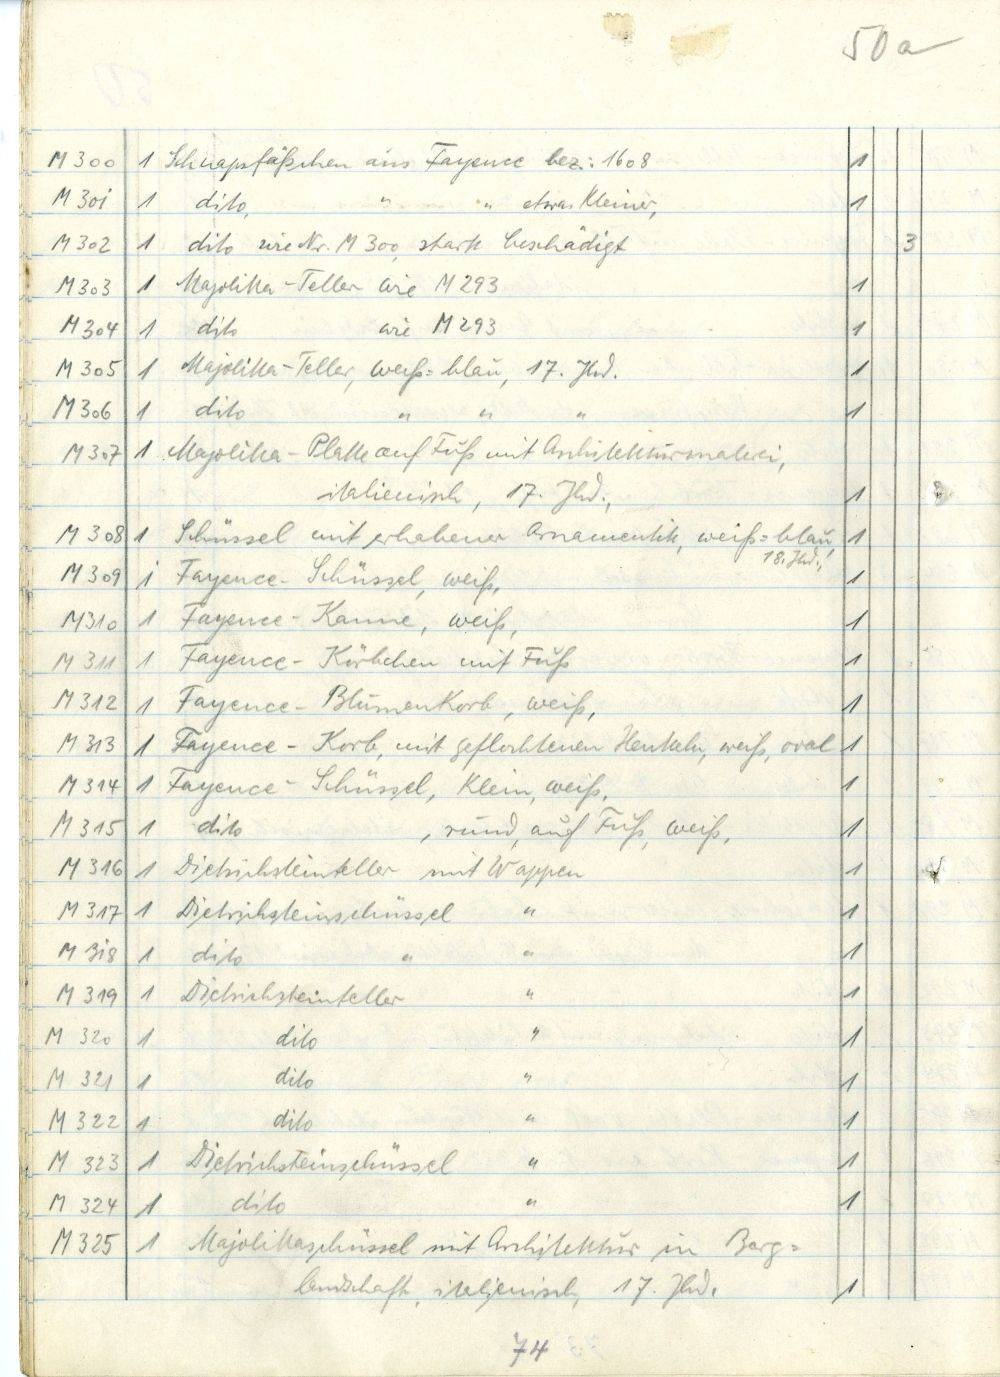 50a
M 300 1 Schnapsfäßchen aus Fayence bez.: 1608 1
M 301 1 dito, " " etwas Kleiner, 1
M 302 1 dito wie Nr. M 300, stark beschädigt 3
M 303 1 Majolika-Teller wie M 293 1
M 304 1 dito wie M 293 1
M 305 1 Majolika-Teller, weiß=blau, 17. Jhd. 1
M 306 1 dito " " " 1
M 307 1 Majolika-Platte auf Fuß mit Architekturmalerei,
italienisch, 17. Jhd., 1
M 308 1 Schüssel mit erhabener Ornamentik, weiß=blau, 1
18. Jhd.,
M 309 1 Fayence-Schüssel, weiß, 1
M 310 1 Fayence-Kanne, weiß, 1
M 311 1 Fayence-Körbchen mit Fuß 1
M 312 1 Fayence-Blumenkorb, weiß, 1
M 313 1 Fayence-Korb, mit geflochtenen Henkeln, weiß, oval 1
M 314 1 Fayence-Schüssel, klein, weiß, 1
M 315 1 dito, rund, auf Fuß, weiß, 1
M 316 1 Dietrichsteinteller mit Wappen 1
M 317 1 Dietrichsteinschüssel " 1
M 318 1 dito " " 1
M 319 1 Dietrichsteinteller " 1
M 320 1 dito " 1
M 321 1 dito " 1
M 322 1 dito " 1
M 323 1 Dietrichsteinschüssel " 1
M 324 1 dito " 1
M 325 1 Majolikaschüssel mit Architektur in Berg=
landschaft, italienisch, 17. Jhd. 1
74